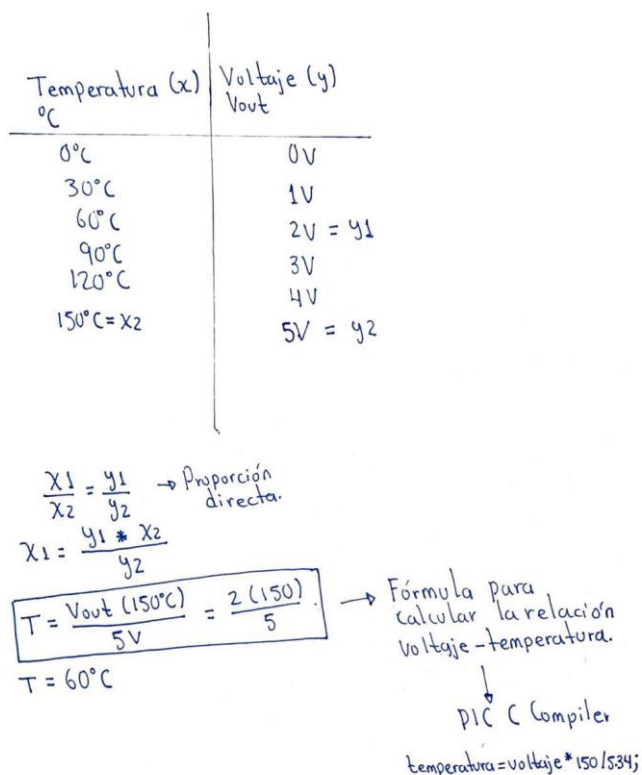 Temperatura (x) Voltaje (y)
°C Vout
0°C 0V
30°C 1V
60°C 2V = y1
90°C 3V
120°C 4V
150°C = X2 5V = y2
X1/X2 = y1/y2 → Proporción directa.
X1 = y1 * X2 / y2
T = Vout (150°C) / 5V = 2 (150) / 5 . → Fórmula para
calcular la relación
voltaje-temperatura.
T = 60°C
PIC C Compiler
temperatura=voltaje*150/5.34;